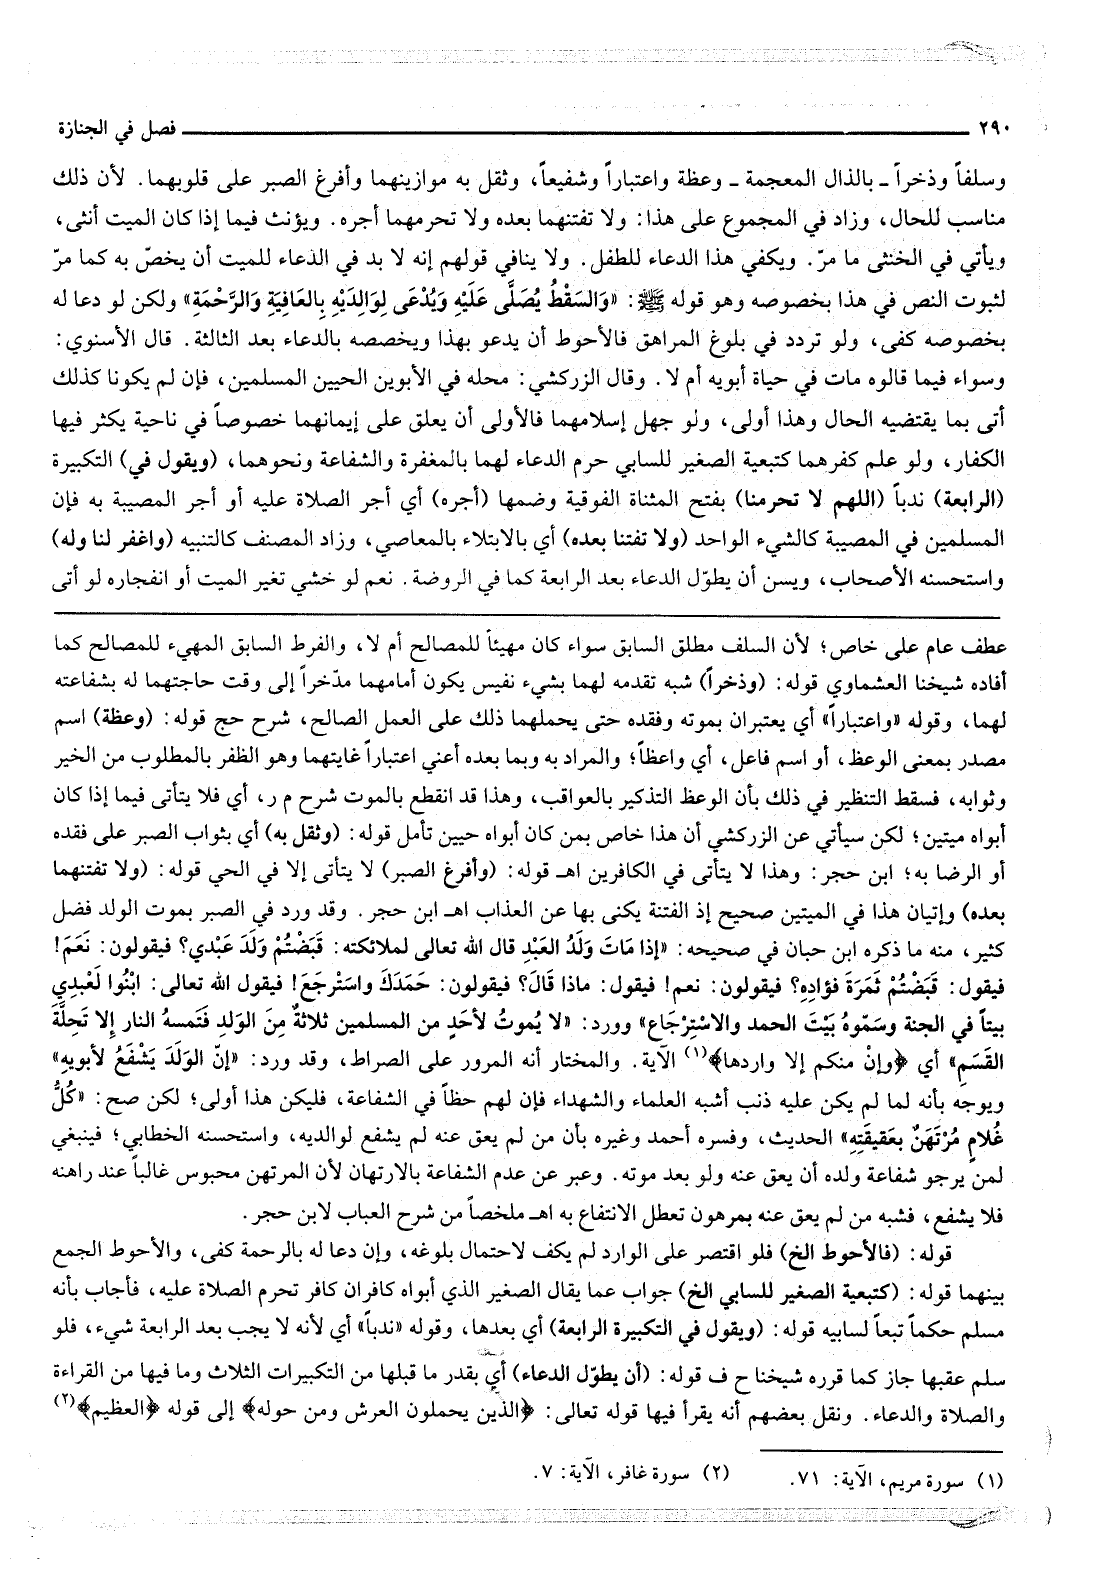 ٢٩٠ فصل في الجنازة
وسلفاً وذخراً ـ بالذال المعجمة ـ وعظة واعتباراً وشفيعاً، وثقل به موازينهما وأفرغ الصبر على قلوبهما. لأن ذلك
مناسب للحال، وزاد في المجموع على هذا: ولا تفتنهما بعده ولا تحرمهما أجره. ويؤنث فيما إذا كان الميت أنثى،
ويأتي في الخنثى ما مرّ. ويكفي هذا الدعاء للطفل. ولا ينافي قولهم إنه لا بد في الدعاء للميت أن يخصّ به كما مرّ
لثبوت النص في هذا بخصوصه وهو قوله ﷺ: «وَالسَقْطُ يُصَلَّى عَلَيْهِ وَيُدْعَى لِوَالِدَيْهِ بِالعَافِيَةِ وَالرَّحْمَةِ» ولكن لو دعا له
بخصوصه كفى، ولو تردد في بلوغ المراهق فالأحوط أن يدعو بهذا ويخصصه بالدعاء بعد الثالثة. قال الأسنوي:
وسواء فيما قالوه مات في حياة أبويه أم لا. وقال الزركشي: محله في الأبوين الحيين المسلمين، فإن لم يكونا كذلك
أتى بما يقتضيه الحال وهذا أولى، ولو جهل إسلامهما فالأولى أن يعلق على إيمانهما خصوصاً في ناحية يكثر فيها
الكفار، ولو علم كفرهما كتبعية الصغير للسابي حرم الدعاء لهما بالمغفرة والشفاعة ونحوهما، (ويقول في) التكبيرة
(الرابعة) ندباً (اللهم لا تحرمنا) بفتح المثناة الفوقية وضمها (أجره) أي أجر الصلاة عليه أو أجر المصيبة به فإن
المسلمين في المصيبة كالشيء الواحد (ولا تفتنا بعده) أي بالابتلاء بالمعاصي، وزاد المصنف كالتنبيه (واغفر لنا وله)
واستحسنه الأصحاب، ويسن أن يطوّل الدعاء بعد الرابعة كما في الروضة. نعم لو خشي تغير الميت أو انفجاره لو أتى
عطف عام على خاص؛ لأن السلف مطلق السابق سواء كان مهيئاً للمصالح أم لا، والفرط السابق المهيء للمصالح كما
أفاده شيخنا العشماوي قوله: (وذخراً) شبه تقدمه لهما بشيء نفيس يكون أمامهما مدّخراً إلى وقت حاجتهما له بشفاعته
لهما، وقوله «واعتباراً» أي يعتبران بموته وفقده حتى يحملهما ذلك على العمل الصالح، شرح حج قوله: (وعظة) اسم
مصدر بمعنى الوعظ، أو اسم فاعل، أي واعظاً؛ والمراد به وبما بعده أعني اعتباراً غايتهما وهو الظفر بالمطلوب من الخير
وثوابه، فسقط التنظير في ذلك بأن الوعظ التذكير بالعواقب، وهذا قد انقطع بالموت شرح م ر، أي فلا يتأتى فيما إذا كان
أبواه ميتين؛ لكن سيأتي عن الزركشي أن هذا خاص بمن كان أبواه حيين تأمل قوله: (وثقل به) أي بثواب الصبر على فقده
أو الرضا به؛ ابن حجر: وهذا لا يتأتى في الكافرين اهـ قوله: (وأفرغ الصبر) لا يتأتى إلا في الحي قوله: (ولا تفتنهما
بعده) وإتيان هذا في الميتين صحيح إذ الفتنة يكنى بها عن العذاب اهـ ابن حجر. وقد ورد في الصبر بموت الولد فضل
كثير، منه ما ذكره ابن حبان في صحيحه: «إذا مَاتَ وَلَدُ العَبْدِ قال الله تعالى لملائكته: قَبَضْتُمْ وَلَدَ عَبْدِي؟ فيقولون: نَعَمَ!
فيقول: قَبَضْتُمْ ثَمَرَةَ فؤادِهِ؟ فيقولون: نعم! فيقول: ماذا قَالَ؟ فيقولون: حَمَدَكَ واسَتَرجَعَ! فيقول الله تعالى: ابْنُوا لَعْبدِي
بيتاً في الجنة وسَمّوهُ بَيْتَ الحمد والاسْتِرْجَاع» وورد: «لا يُموتُ لأحَدٍ من المسلمين ثلاثةٌ مِنَ الوَلدِ فَتَمسهُ النار إلا تَحِلَّةَ
القَسَمِ» أي ﴿وإنْ منكم إلا واردها﴾(١) الآية. والمختار أنه المرور على الصراط، وقد ورد: «إنّ الوَلَدَ يَشْفَعُ لأبويهِ»
ويوجه بأنه لما لم يكن عليه ذنب أشبه العلماء والشهداء فإن لهم حظاً في الشفاعة، فليكن هذا أولى؛ لكن صح: «كُلُّ
غُلامٍ مُرْتَهَنٌ بعَقيقَتِهِ» الحديث، وفسره أحمد وغيره بأن من لم يعق عنه لم يشفع لوالديه، واستحسنه الخطابي؛ فينبغي
لمن يرجو شفاعة ولده أن يعق عنه ولو بعد موته. وعبر عن عدم الشفاعة بالارتهان لأن المرتهن محبوس غالباً عند راهنه
فلا يشفع، فشبه من لم يعق عنه بمرهون تعطل الانتفاع به اهـ ملخصاً من شرح العباب لابن حجر.
قوله: (فالأحوط الخ) فلو اقتصر على الوارد لم يكف لاحتمال بلوغه، وإن دعا له بالرحمة كفى، والأحوط الجمع
بينهما قوله: (كتبعية الصغير للسابي الخ) جواب عما يقال الصغير الذي أبواه كافران كافر تحرم الصلاة عليه، فأجاب بأنه
مسلم حكماً تبعاً لسابيه قوله: (ويقول في التكبيرة الرابعة) أي بعدها، وقوله «ندباً» أي لأنه لا يجب بعد الرابعة شيء، فلو
سلم عقبها جاز كما قرره شيخنا ح ف قوله: (أن يطوّل الدعاء) أي بقدر ما قبلها من التكبيرات الثلاث وما فيها من القراءة
والصلاة والدعاء. ونقل بعضهم أنه يقرأ فيها قوله تعالى: ﴿الذين يحملون العرش ومن حوله﴾ إلى قوله ﴿العظيم﴾(٢)
(١) سورة مريم، الآية: ٧١. (٢) سورة غافر، الآية: ٧.